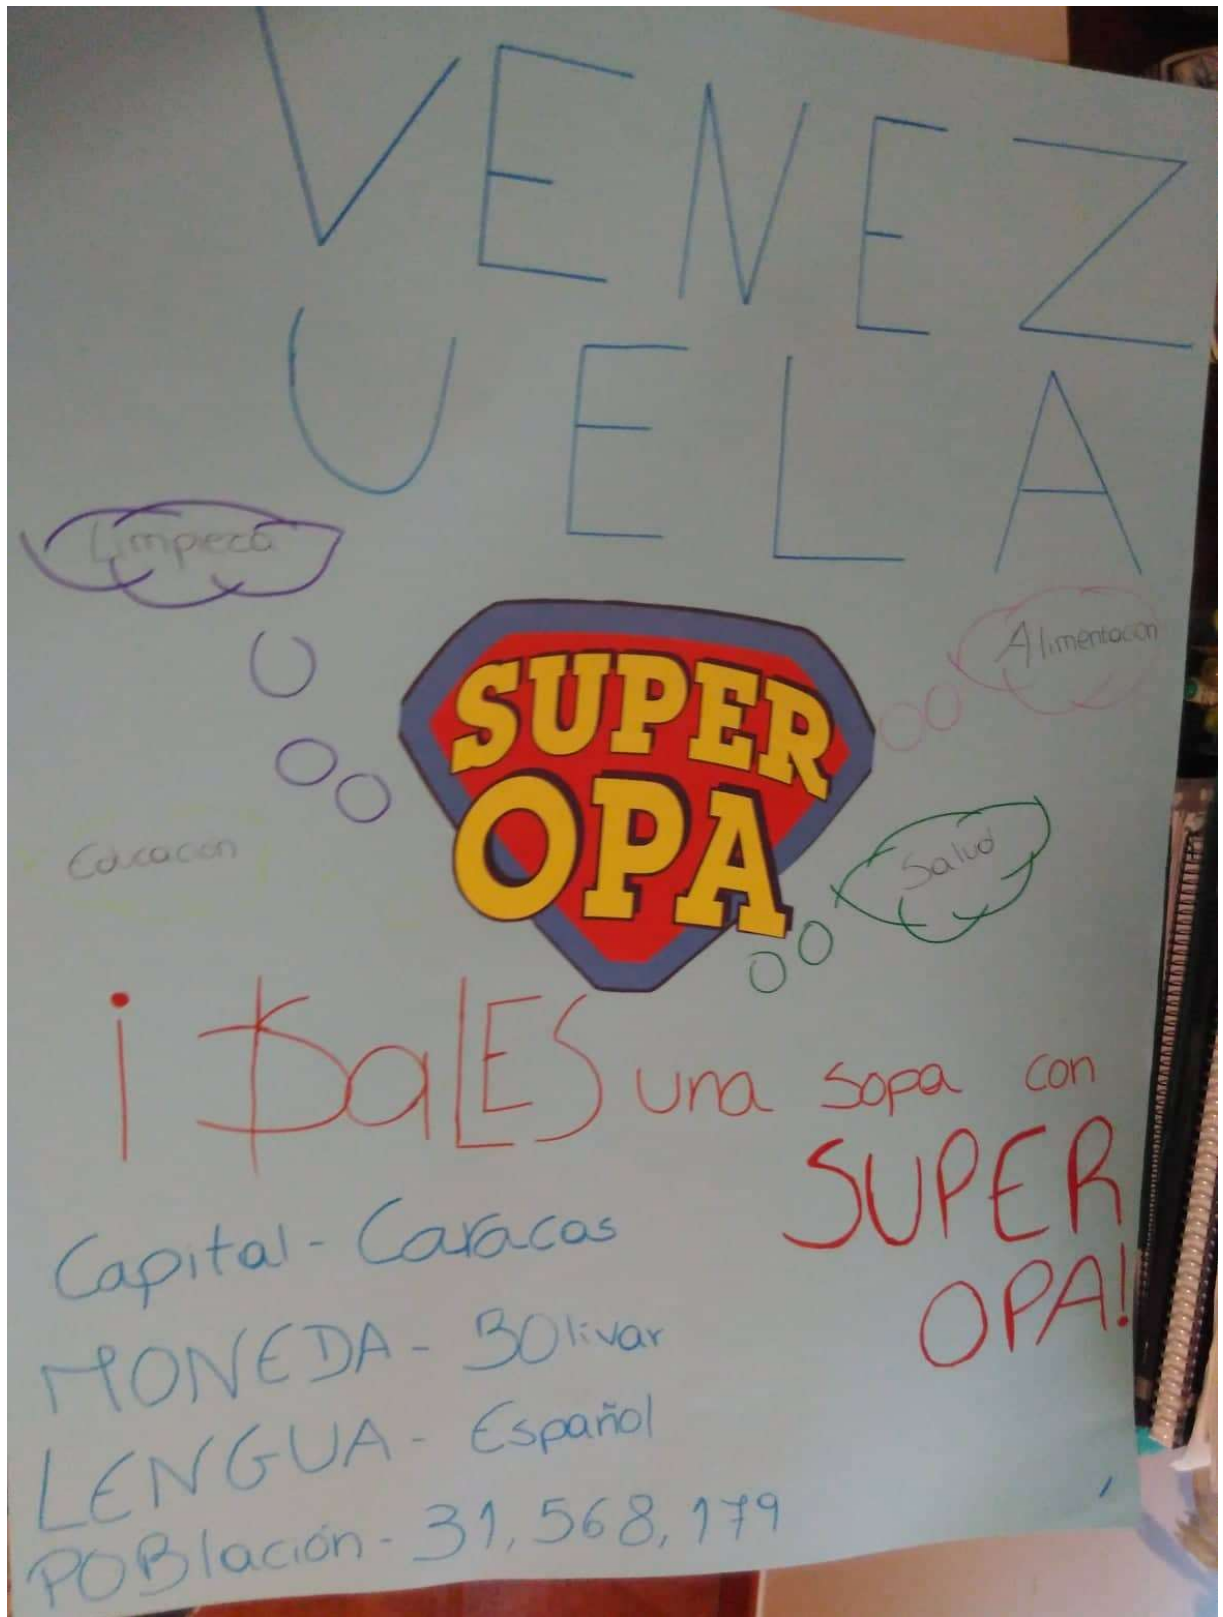 VENEZ
UELA
Limpieza
Alimentación
SUPER
OPA
Educación
Salud
¡DaLES una sopa con
SUPER
OPA!
Capital - Caracas
MONEDA - BOlivar
LENGUA - Español
POBlación - 31,568,179